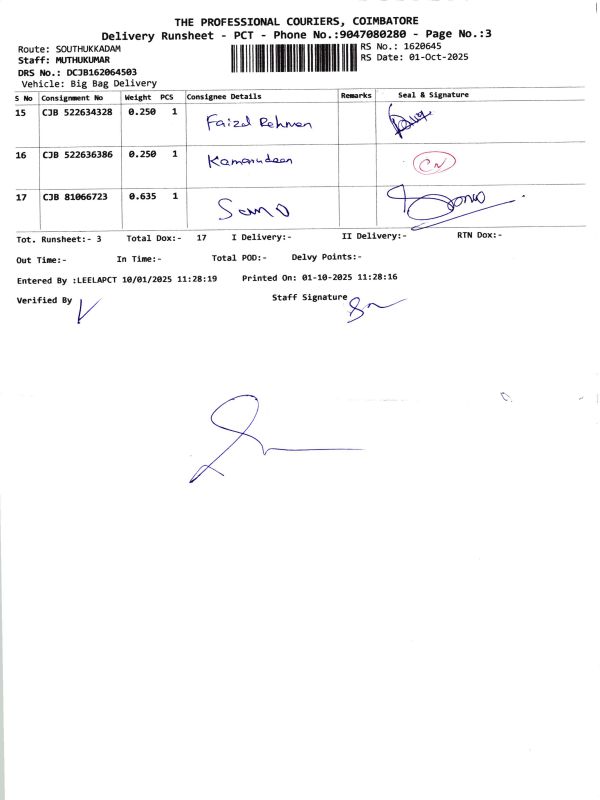 THE PROFESSIONAL COURIERS, COIMBATORE
Delivery Runsheet - PCT - Phone No.:9047080280 - Page No.:3
Route: SOUTHUKKADAM RS No.: 1620645
Staff: MUTHUKUMAR RS Date: 01-Oct-2025
DRS No.: DCJB162064503
Vehicle: Big Bag Delivery
S No Consignment No Weight PCS Consignee Details Remarks Seal & Signature
15 CJB 522634328 0.250 1 Faizal Rehman
16 CJB 522636386 0.250 1 Kamarudeen CN
17 CJB 81066723 0.635 1
Tot. Runsheet:- 3 Total Dox:- 17 I Delivery:- II Delivery:- RTN Dox:-
Out Time:- In Time:- Total POD:- Delvy Points:-
Entered By :LEELAPCT 10/01/2025 11:28:19 Printed On: 01-10-2025 11:28:16
Verified By Staff Signature